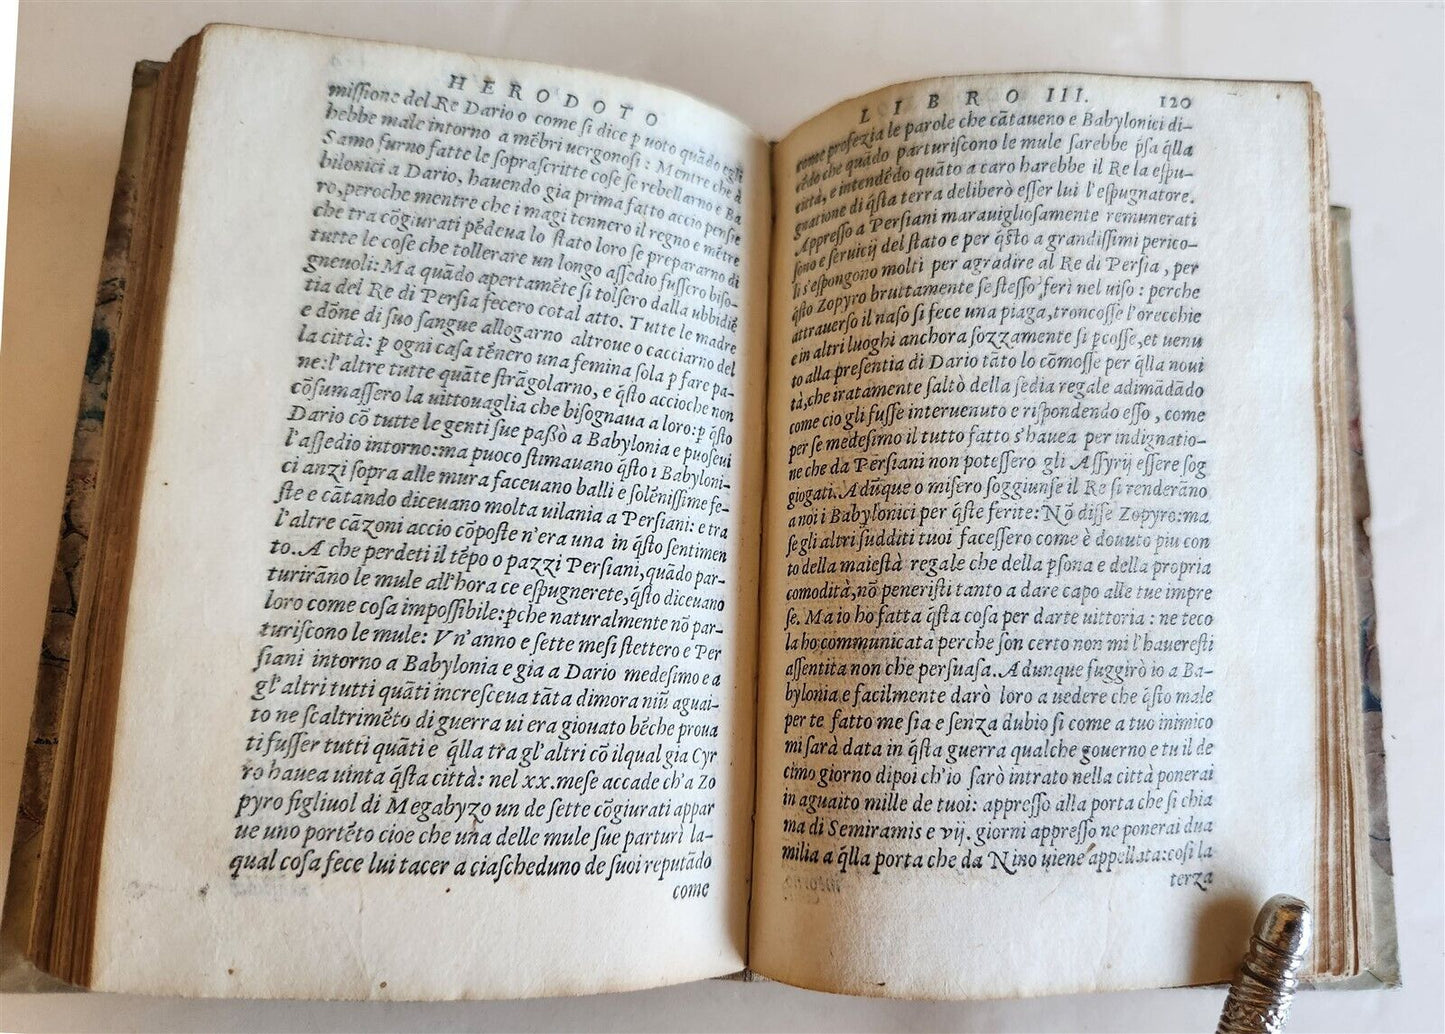 HERODOTO
miſſione del Re Dario o come ſi dice ꝑ uoto quãdo egli
hebbe male intorno a mẽbri uergonoſi: Mentre che a
Samo furno fatte le ſopraſcritte coſe ſe rebellarno e Ba
bilonici a Dario, hauendo gia prima fatto accio penſie
ro, peroche mentre che i magi tennero il regno e mẽtre
che tra cõgiurati pẽdeua lo ſtato loro ſe prepararno di
tutte le coſe che tollerare un longo aſſedio fuſſero biſo-
gneuoli: Ma quãdo apertamẽte ſi tolſero dalla ubbidiẽ
tia del Re di Perſia fecero cotal atto. Tutte le madre
e dõne di ſuo ſangue allogarno altroue o cacciarno del
la città: ꝑ ogni caſa tẽnero una femina ſola ꝑ fare pa-
ne: l'altre tutte quãte ſtrãgolarno, e q̃ſto accioche non
cõſumaſſero la uittouaglia che biſognaua a loro: ꝑ q̃ſto
Dario cõ tutte le genti ſue paſsò a Babylonia e puoſeui
l'aſſedio intorno: ma puoco ſtimauano q̃ſto i Babyloni-
ci anzi ſopra alle mura faceuano balli e ſolẽniſſime fe-
ſte e cãtando diceuano molta uilania a Perſiani: e tra
l'altre cãzoni accio cõpoſte n'era una in q̃ſto ſentimen
to. A che perdeti il tẽpo o pazzi Perſiani, quãdo par-
turirãno le mule all'hora ce eſpugnerete, q̃ſto diceuano
loro come coſa impoſſibile: ꝑche naturalmente nõ par-
turiſcono le mule: Vn'anno e ſette meſi ſtettero e Per
ſiani intorno a Babylonia e gia a Dario medeſimo e a
gl'altri tutti quãti increſceua tãta dimora niũ aguai-
to ne ſcaltrimẽto di guerra ui era giouato bẽche proua
ti fuſſer tutti quãti e q̃lla tra gl'altri cõ il qual gia Cyr
ro hauea uinta q̃ſta città: nel xx. meſe accade ch'a Zo
pyro figliuol di Megabyzo un de ſette cõgiurati appar
ue uno portẽto cioe che una delle mule ſue parturì la-
qual coſa fece lui tacer a ciaſcheduno de ſuoi reputãdo
come
LIBRO III. 120
come profezia le parole che cãtaueno e Babylonici di-
cẽdo che quãdo parturiſcono le mule ſarebbe p̃ſa q̃lla
città, e intendẽdo quãto a caro harebbe il Re la eſpu-
gnatione di q̃ſta terra deliberò eſſer lui l'eſpugnatore.
Appreſſo a Perſiani marauiglioſamente remunerati
ſono e ſeruicij del ſtato e per q̃ſto a grandiſſimi perico-
li s'eſpongono molti per agradire al Re di Perſia, per
q̃ſto Zopyro bruttamente ſe ſteſſo ferì nel uiſo: perche
attrauerſo il naſo ſi fece una piaga, troncoſſe l'orecchie
e in altri luoghi anchora ſozzamente ſi ꝑcoſſe, et uenu
to alla preſentia di Dario tãto lo cõmoſſe per q̃lla noui
tà, che iratamente ſaltò della ſedia regale adimãdãdo
come cio gli fuſſe interuenuto e riſpondendo eſſo, come
per ſe medeſimo il tutto fatto s'hauea per indignatio-
ne che da Perſiani non poteſſero gli Aſſyrij eſſere ſog
giogati. Adũque o miſero ſoggiunſe il Re ſi renderãno
a noi i Babylonici per q̃ſte ferite: Nõ diſſe Zopyro: ma
ſe gli altri ſudditi tuoi faceſſero come è douuto piu con
to della maieſtà regale che della ꝑſona e della propria
comodità, nõ peneriſti tanto a dare capo alle tue impre
ſe. Ma io ho fatta q̃ſta coſa per darte uittoria: ne teco
la ho communicata perche ſon certo non mi l'hauereſti
aſſentita non che perſuaſa. Adunque fuggirò io a Ba-
bylonia e facilmente darò loro a uedere che q̃ſto male
per te fatto me ſia e ſenza dubio ſi come a tuo inimico
mi ſarà data in q̃ſta guerra qualche gouerno e tu il de
cimo giorno dipoi ch'io ſarò intrato nella città ponerai
in aguaito mille de tuoi: appreſſo alla porta che ſi chia
ma di Semiramis e vij. giorni appreſſo ne ponerai dua
milia a q̃lla porta che da Nino uiene appellata: coſi la
terza